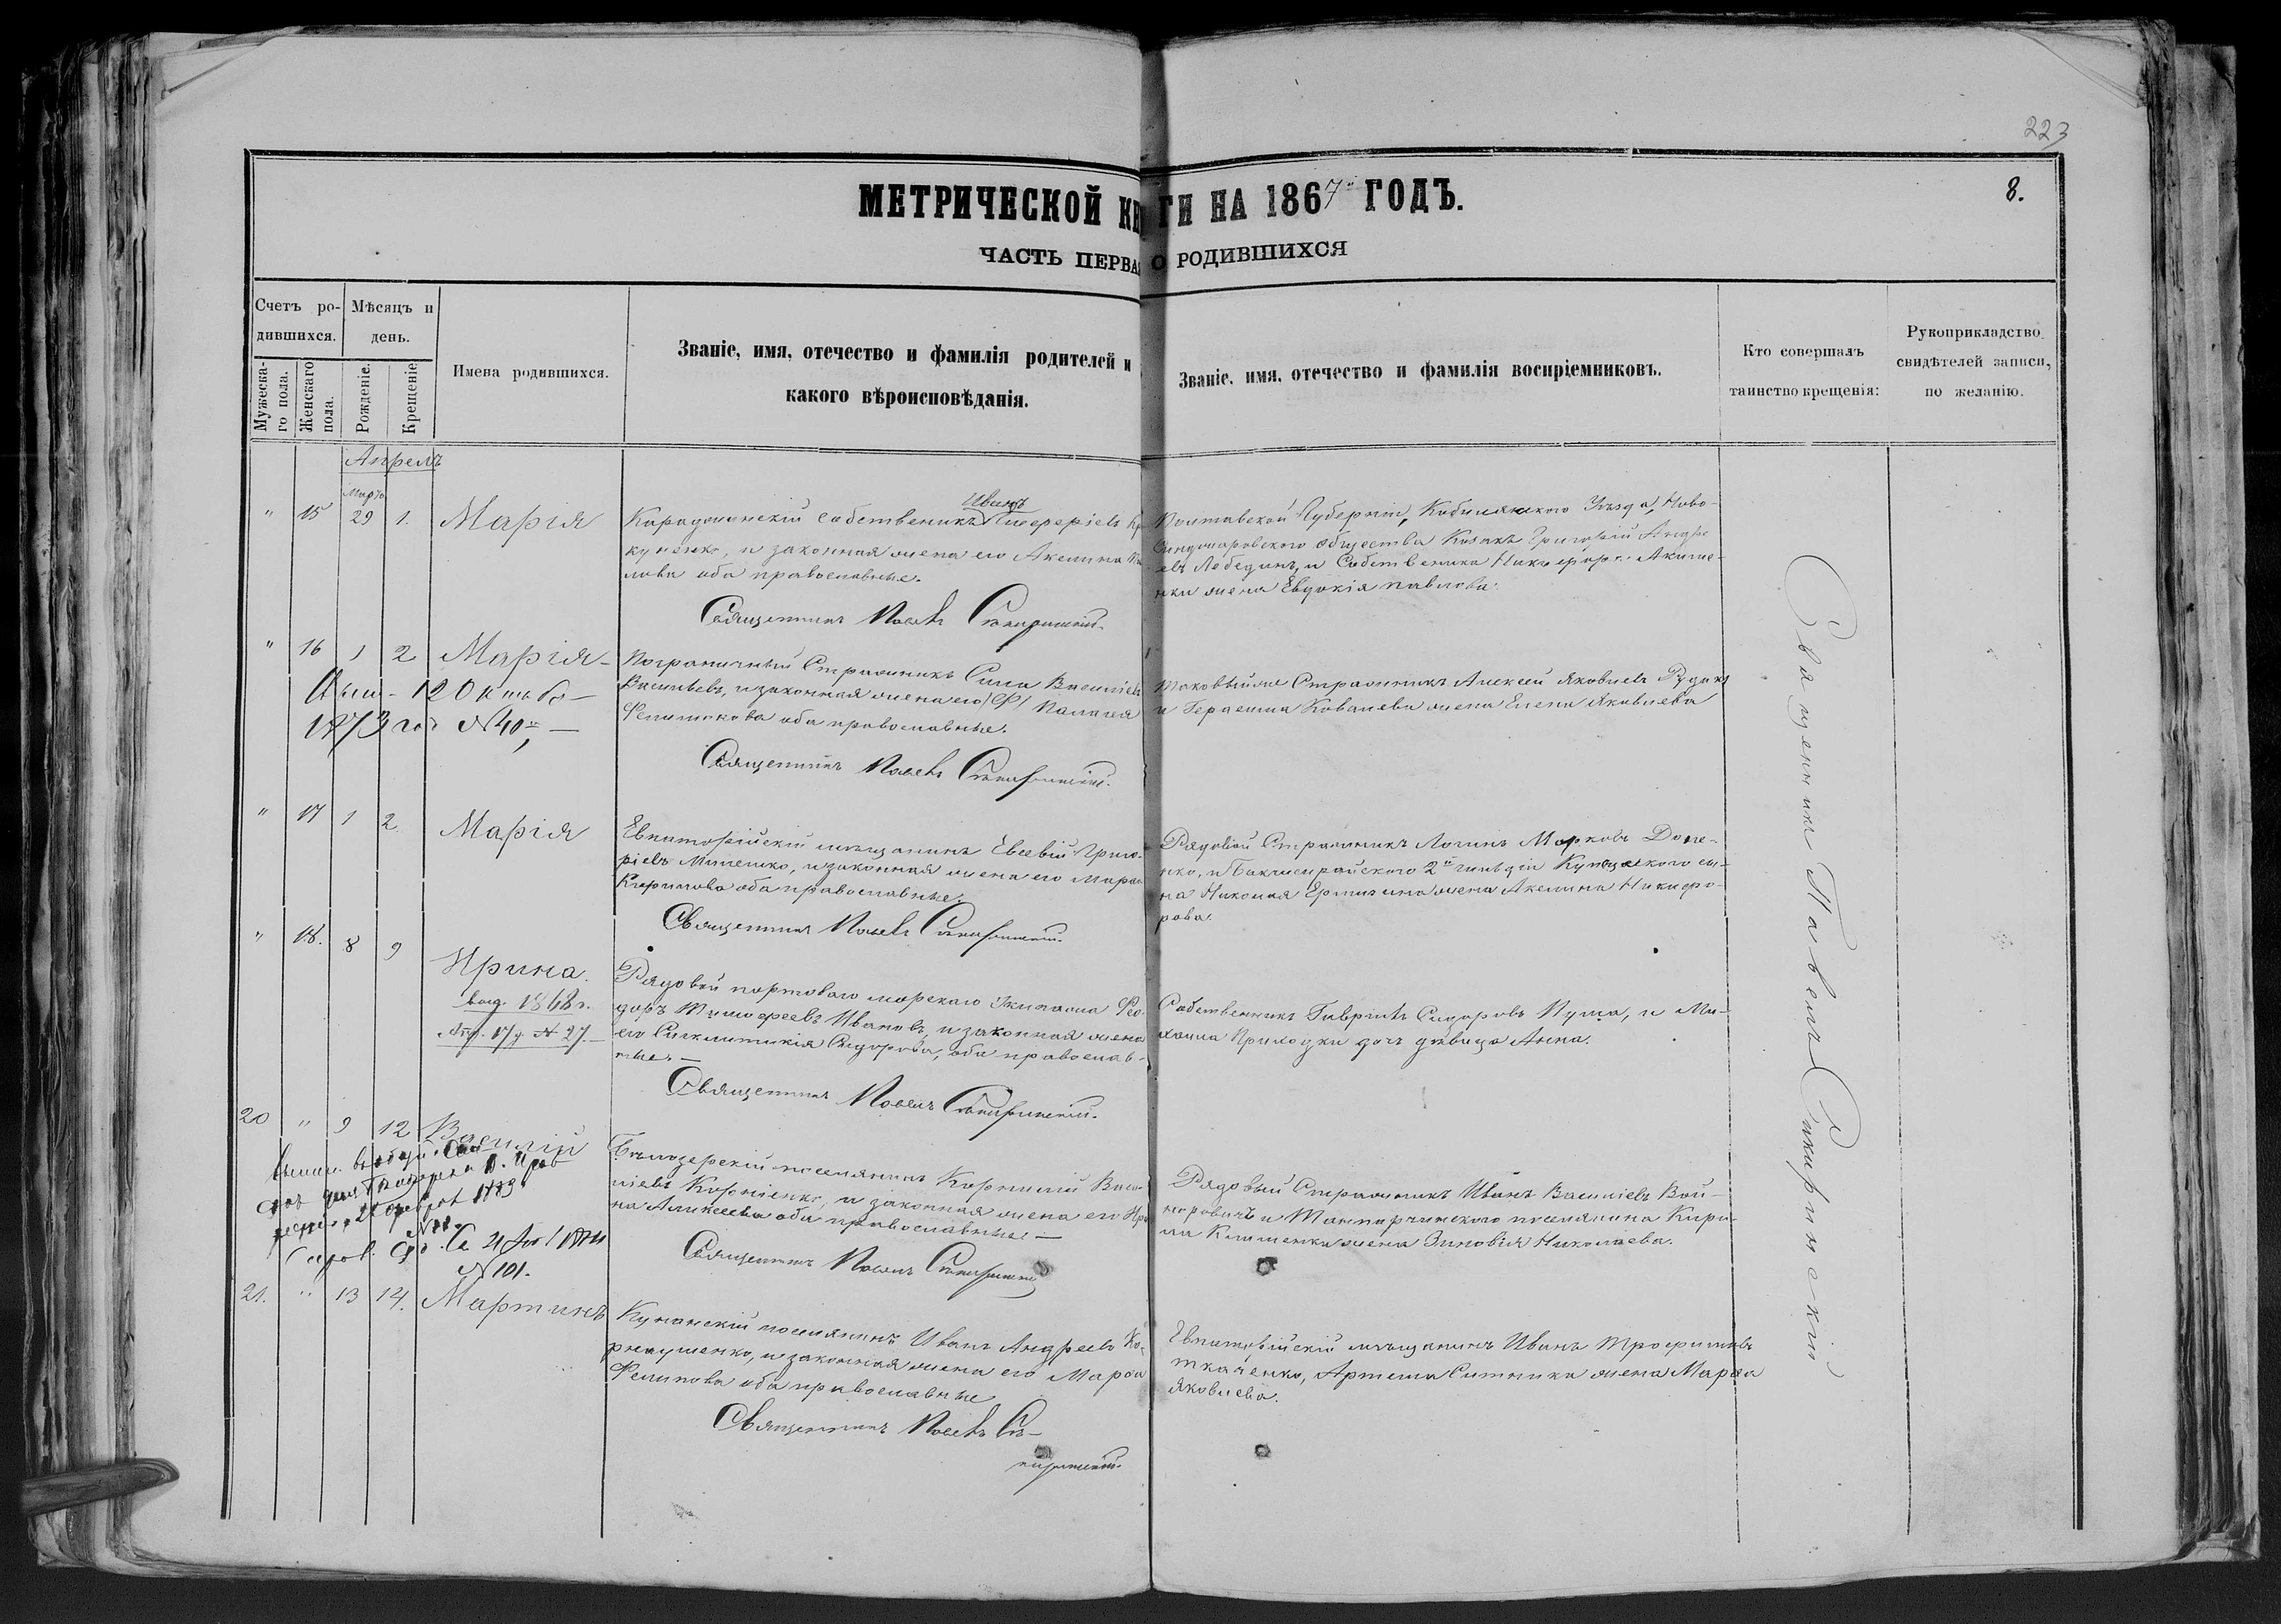 223
8.
МЕТРИЧЕСКОЙ КН ГИ НА 1867 ГОДЪ.
ЧАСТЬ ПЕРВА О РОДИВШИХСЯ
Счетъ ро-
дившихся.
Мужеска-
го пола.
Женскаго
пола.
Мѣсяцъ и
день.
Рожденіе.
Крещеніе
Имена родившихся.
Званіе, имя, отечество и фамилія родителей и
какого вѣроисповѣданія.
Званіе, имя, отечество и фамилія воспріемниковъ.
Кто совершалъ
таинство крещенія:
Рукоприкладство
свидѣтелей записи,
по желанію.
Апрель
Мартъ
" 15 29 1. Марія
Иванъ
собственникъ
и законная жена его Акелина
лова оба православные.
Священникъ Павелъ Сикиринскій.
Полтавской Губерніи, Кобелякского Уѣзда, Ново-
Сенджаровского общества Козакъ Григорій Андре
евъ Лебединъ, и Собственника Никифора Акиме-
нки жена Евдокія Павлова.
" 16 1 2 Марія
1873 год N 40
Пограничный Стражникъ Сила Василіевъ
Васильевъ, и законная жена его Палагея
Филипкова оба православные.
Священникъ Павелъ Сикиринскій.
Таковыйже Стражникъ Алексей Яковлевъ Рудакъ
и Герасима Ковалева жена Елена Яковлева
" 17 1 2 Марія
Евпаторійскій мѣщанинъ Евсевій Григо-
ріевъ Милешко, и законная жена его Марфа
Кирилова оба православные.
Священникъ Павелъ Сикиринскій.
Рядовой Стражникъ Логинъ Марковъ Допе-
нко, и Бахчисарайского 2й гильдіи Купецкого сы-
на Николая Ермилина жена Акелина Никифо-
рова.
" 18. 8 9 Ирина.
выд. 1868 г.
Апр. 17 д. N 27.
Рядовой портоваго морскаго Экипажа Фео-
доръ Тимофеевъ Ивановъ, и законная жена
его Синклитикія Сидорова, оба православ-
ные.
Священникъ Павелъ Сикиринскій.
Собственникъ Гаврилъ Сидоровъ Пуша, и Ми-
хаила Приходки дочь дѣвица Анна.
20 " 9 12 Василій
1889
N 101.
Бѣлозерскій поселянинъ Корнилій Васи-
ліевъ Корніенко, и законная жена его Ири
на Алексеева оба православные
Священникъ Павелъ Сикиринскій
Рядовый Стражникъ Иванъ Василіевъ Вой-
норовичъ и Тампарчинского поселянина Кири-
ла Клименки жена Зиновія Николаева.
21. " 13 14. Мартинъ
Куманскій поселянинъ Иванъ Андреевъ Ко-
рнаушенко, и законная жена его Марфа
Филипова оба православные
Священникъ Павелъ Си-
киринскій.
Евпаторійскій мѣщанинъ Иванъ Трофимовъ
Ткаченко, Артема Ситника жена Марфа
Яковлева.
Священникъ Павелъ Сикиринскій